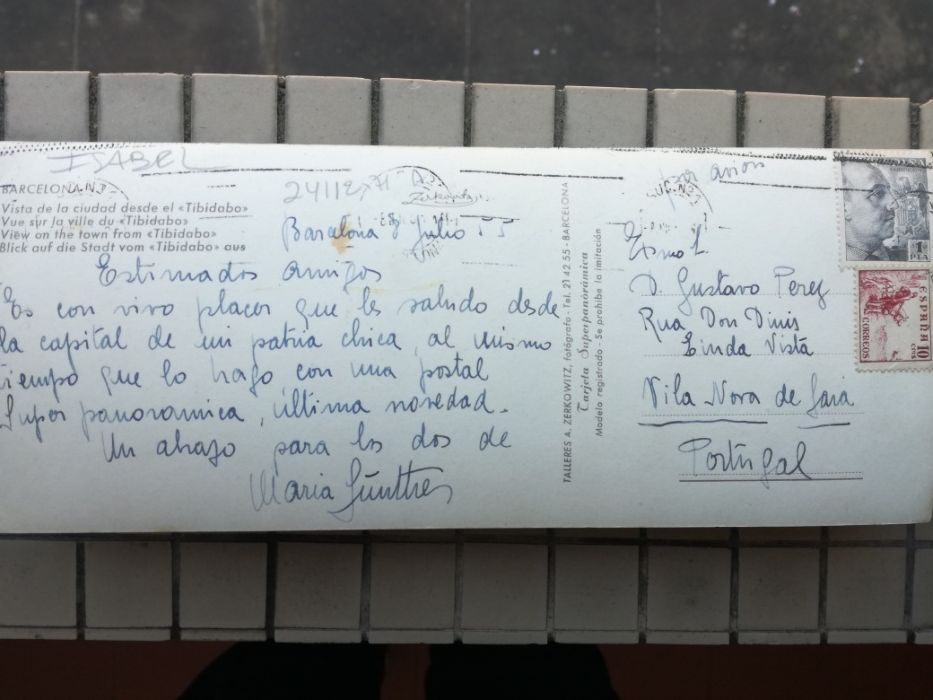 ISABEL
BARCELONA.N.º
Vista de la ciudad desde el «Tibidabo»
Vue sur la ville du «Tibidabo»
View on the town from «Tibidabo»
Blick auf die Stadt vom «Tibidabo» aus
Zerkowitz
Barcelona 8 Julio 55
Estimados amigos
Es con vivo placer que les saludo desde
la capital de mi patria chica, al mismo
tiempo que lo hago con una postal
Super panoramica, última novedad.
Un abrazo para los dos de
Maria Günther
TALLERES A. ZERKOWITZ, fotógrafo - Tel. 21 42 55 - BARCELONA
Tarjeta Superpanorámica
Modelo registrado - Se prohibe la imitación
por avion
Exmo L.
D. Gustavo Perez
Rua Don Dinis
Linda Vista
Vila Nova de Gaia
Portugal
1
PTA
ESPAÑA
CORREOS
10
CTS